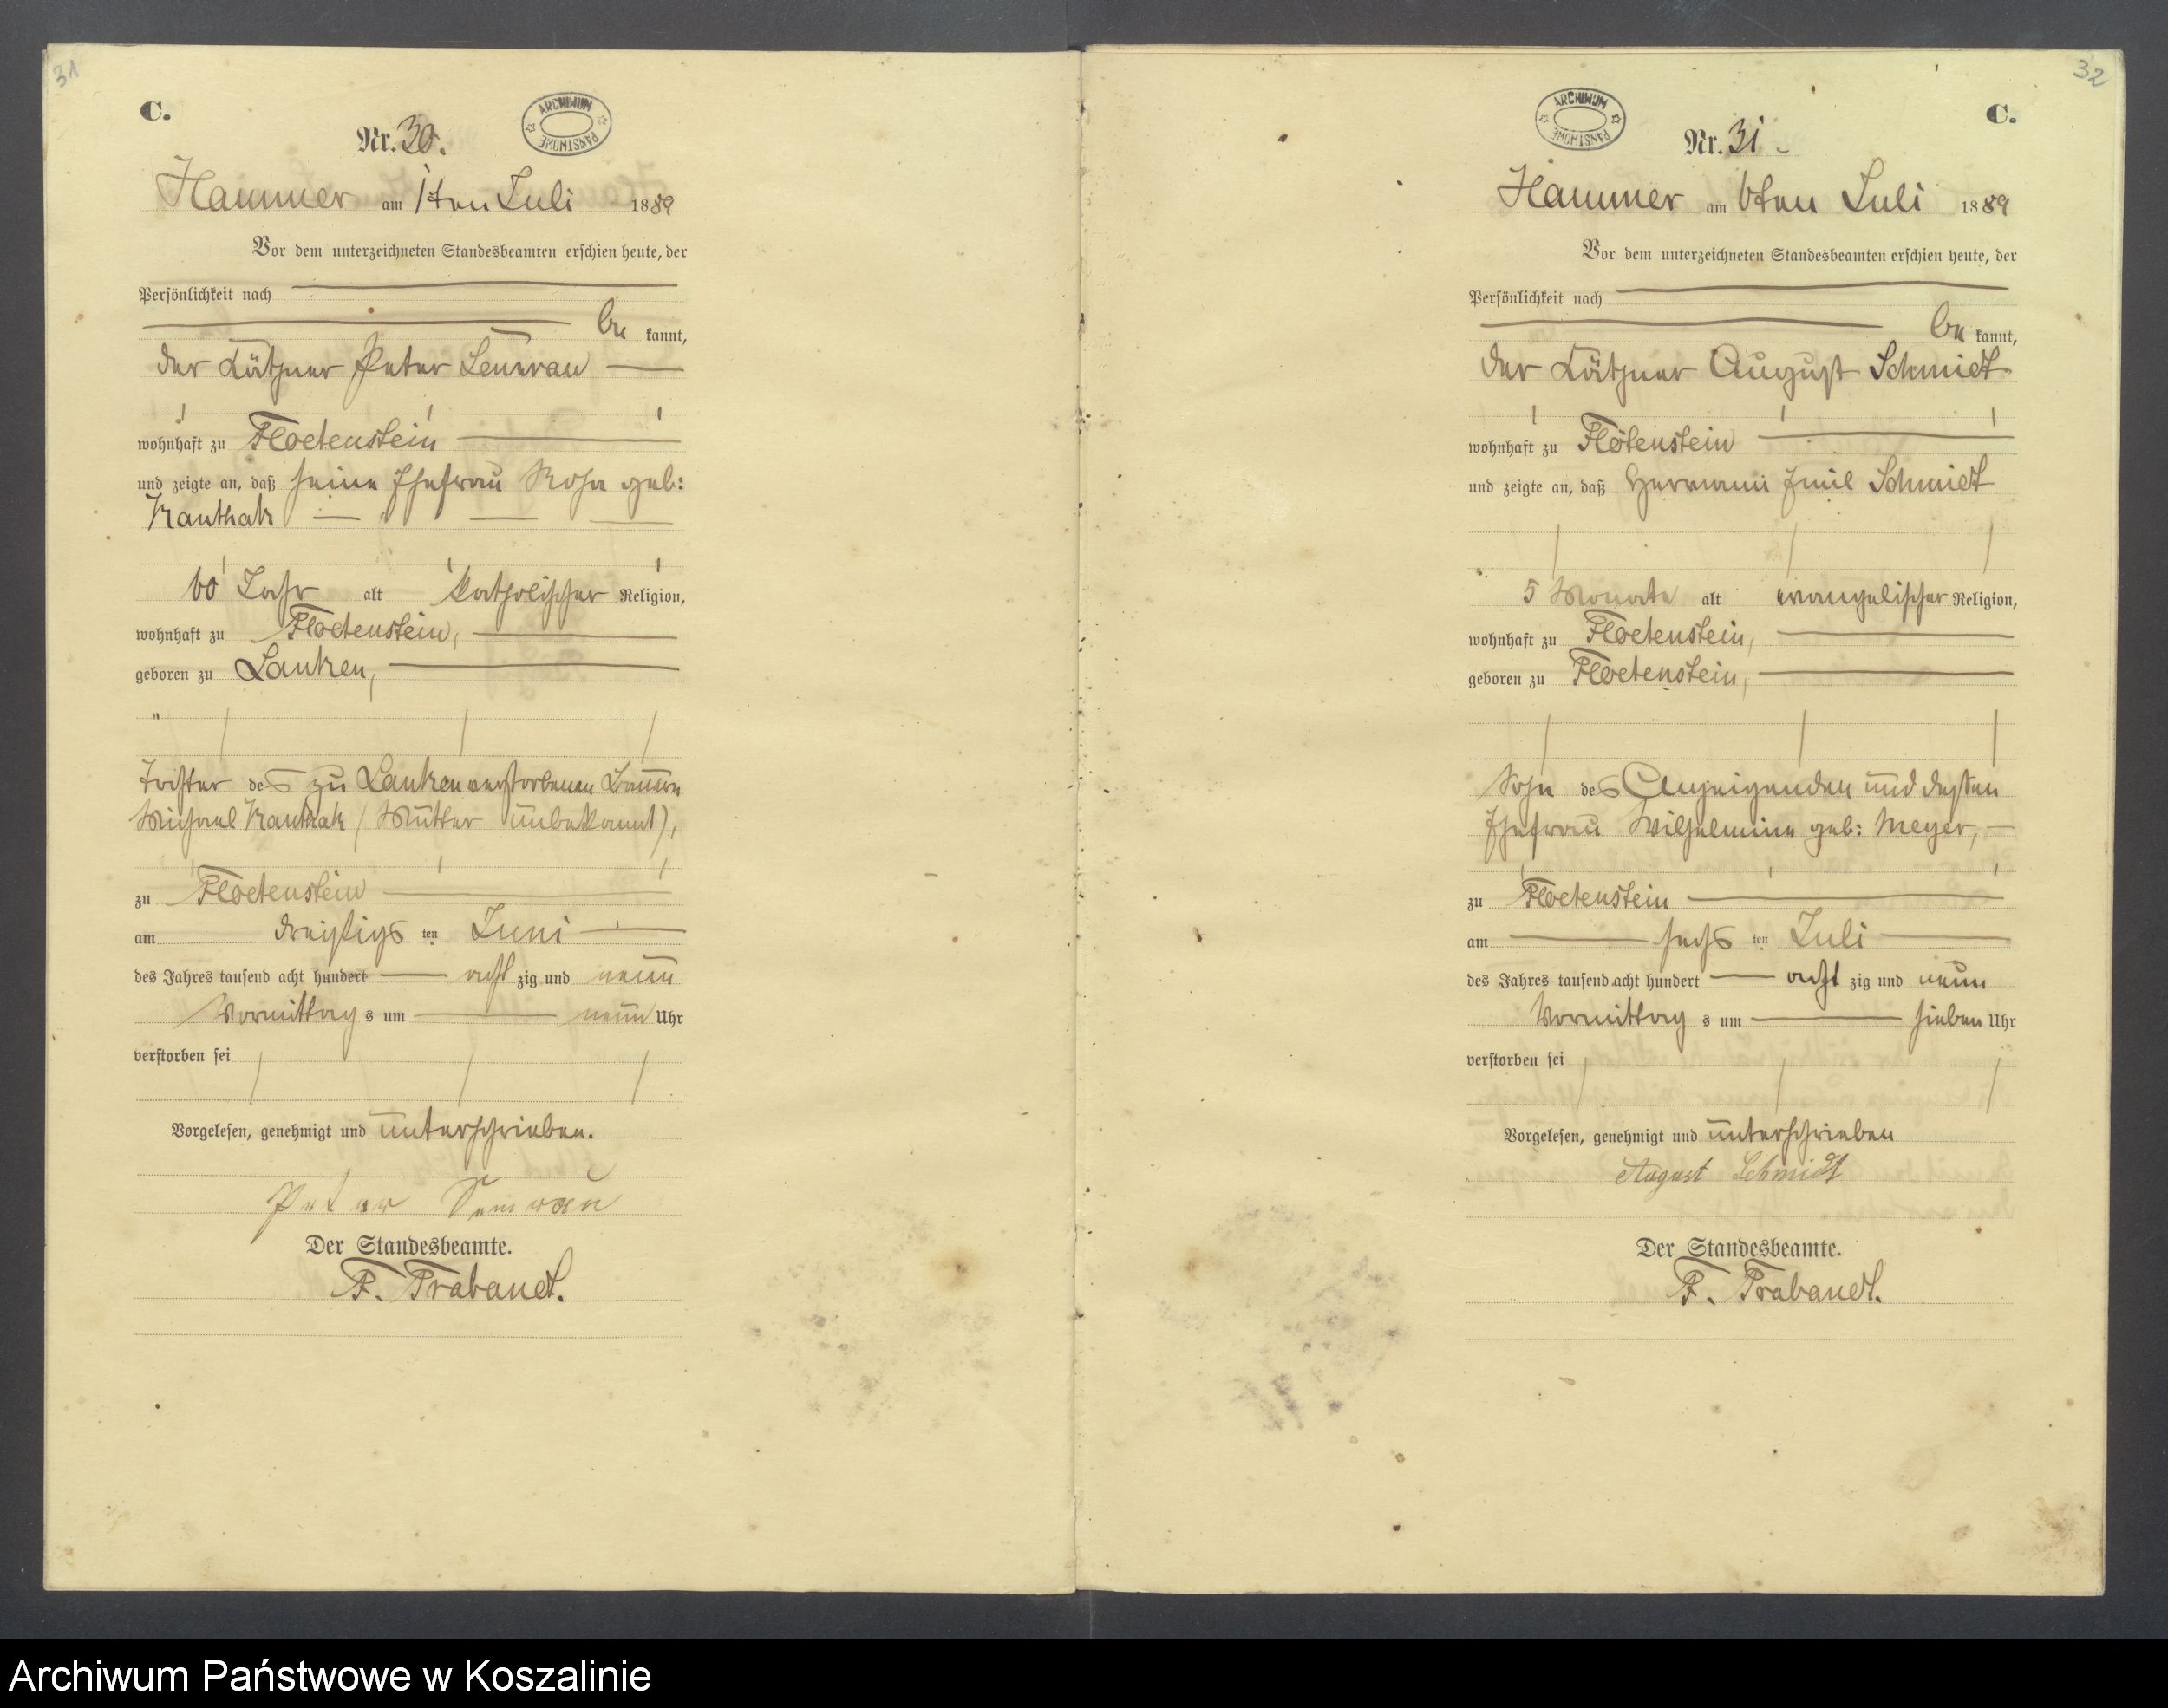 31
C.
Nr. 30.
ARCHIWUM PAŃSTWOWE
Hammer am 1ten Juli 1889
Vor dem unterzeichneten Standesbeamten erschien heute, der
Persönlichkeit nach
be kannt,
der Kätner Peter
wohnhaft zu Floetenstein
und zeigte an, daß seine Ehefrau Rosa geb:
Kanthak
60 Jahr alt katholischer Religion,
wohnhaft zu Floetenstein,
geboren zu Lanken,
Tochter des zu Lanken verstorbenen Bauern
Michael Kanthak (Mutter unbekannt),
zu Floetenstein
am dreißigs ten Juni
des Jahres tausend acht hundert acht zig und neun
Vormittag s um neun Uhr
verstorben sei
Vorgelesen, genehmigt und unterschrieben.
Peter
Der Standesbeamte.
F. Trabandt.
32
C.
ARCHIWUM PAŃSTWOWE
Nr. 31
Hammer am 6ten Juli 1889
Vor dem unterzeichneten Standesbeamten erschien heute, der
Persönlichkeit nach
be kannt,
der Kätner August Schmidt
wohnhaft zu Flötenstein
und zeigte an, daß Hermann Emil Schmidt
5 Monate alt evangelischer Religion,
wohnhaft zu Floetenstein,
geboren zu Floetenstein,
Sohn des Anzeigenden und dessen
Ehefrau Wilhelmine geb: Meyer,
zu Floetenstein
am sechs ten Juli
des Jahres tausend acht hundert acht zig und neun
Vormittag s um sieben Uhr
verstorben sei
Vorgelesen, genehmigt und unterschrieben
August Schmidt
Der Standesbeamte.
F. Trabandt.
Archiwum Państwowe w Koszalinie